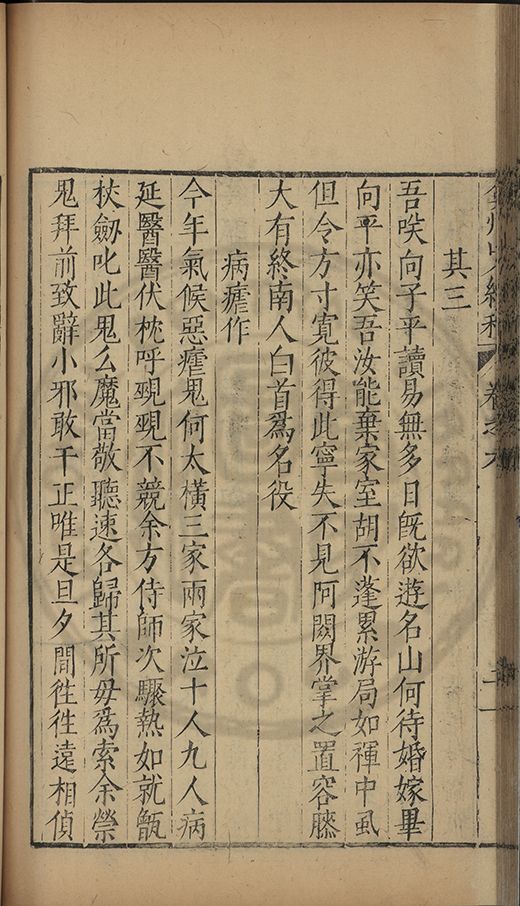 其三
吾咲向子平讀易無多日旣欲遊名山何待婚嫁畢
向平亦笑吾汝能棄家室胡不蓬累游局如褌中虱
但令方寸寛彼得此寧失不見阿閦界掌之置容膝
大有終南人白首爲名役
病瘧作
今年氣候惡瘧鬼何太橫三家兩家泣十人九人病
延醫醫伏枕呼覡覡不競余方侍師次驟熱如就甑
杖劒叱此鬼么魔當敬聽速各歸其所毋爲索余禜
鬼拜前致辭小邪敢干正唯是旦夕間徃徃遠相偵